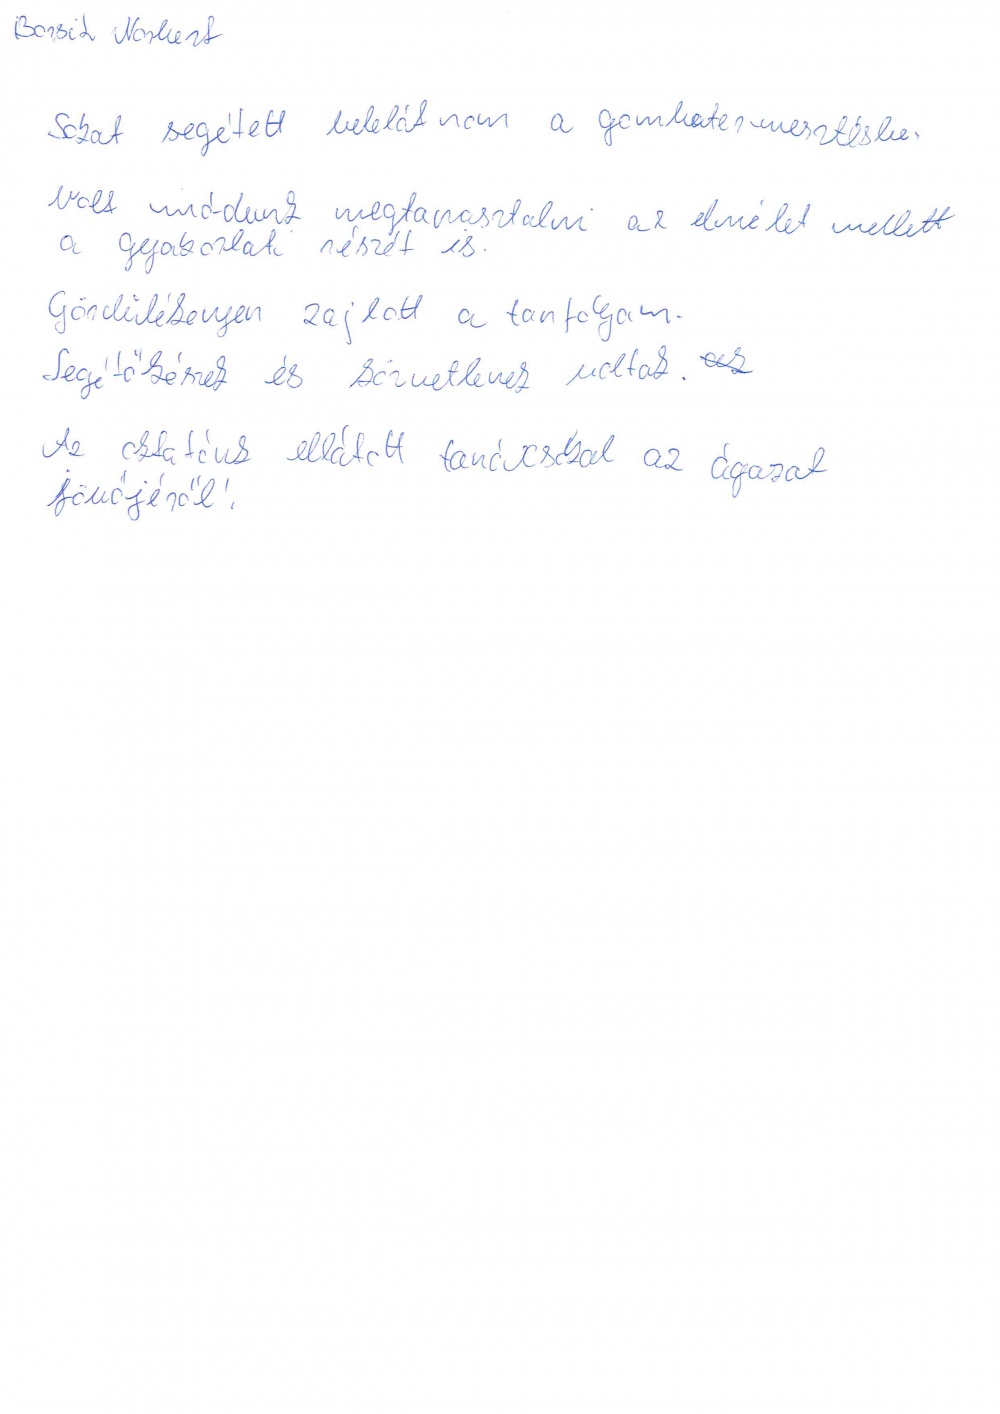 Norbert
Sokat segített belelátnom a gombatermesztésbe.
Volt módunk megtapasztalni az elmélet mellett
a gyakorlati részét is.
Gördülékenyen zajlott a tanfolyam.
Segítőkészek és közvetlenek voltak.
Az oktatónk ellátott tanácsokkal az ágazat
jövőjéről!